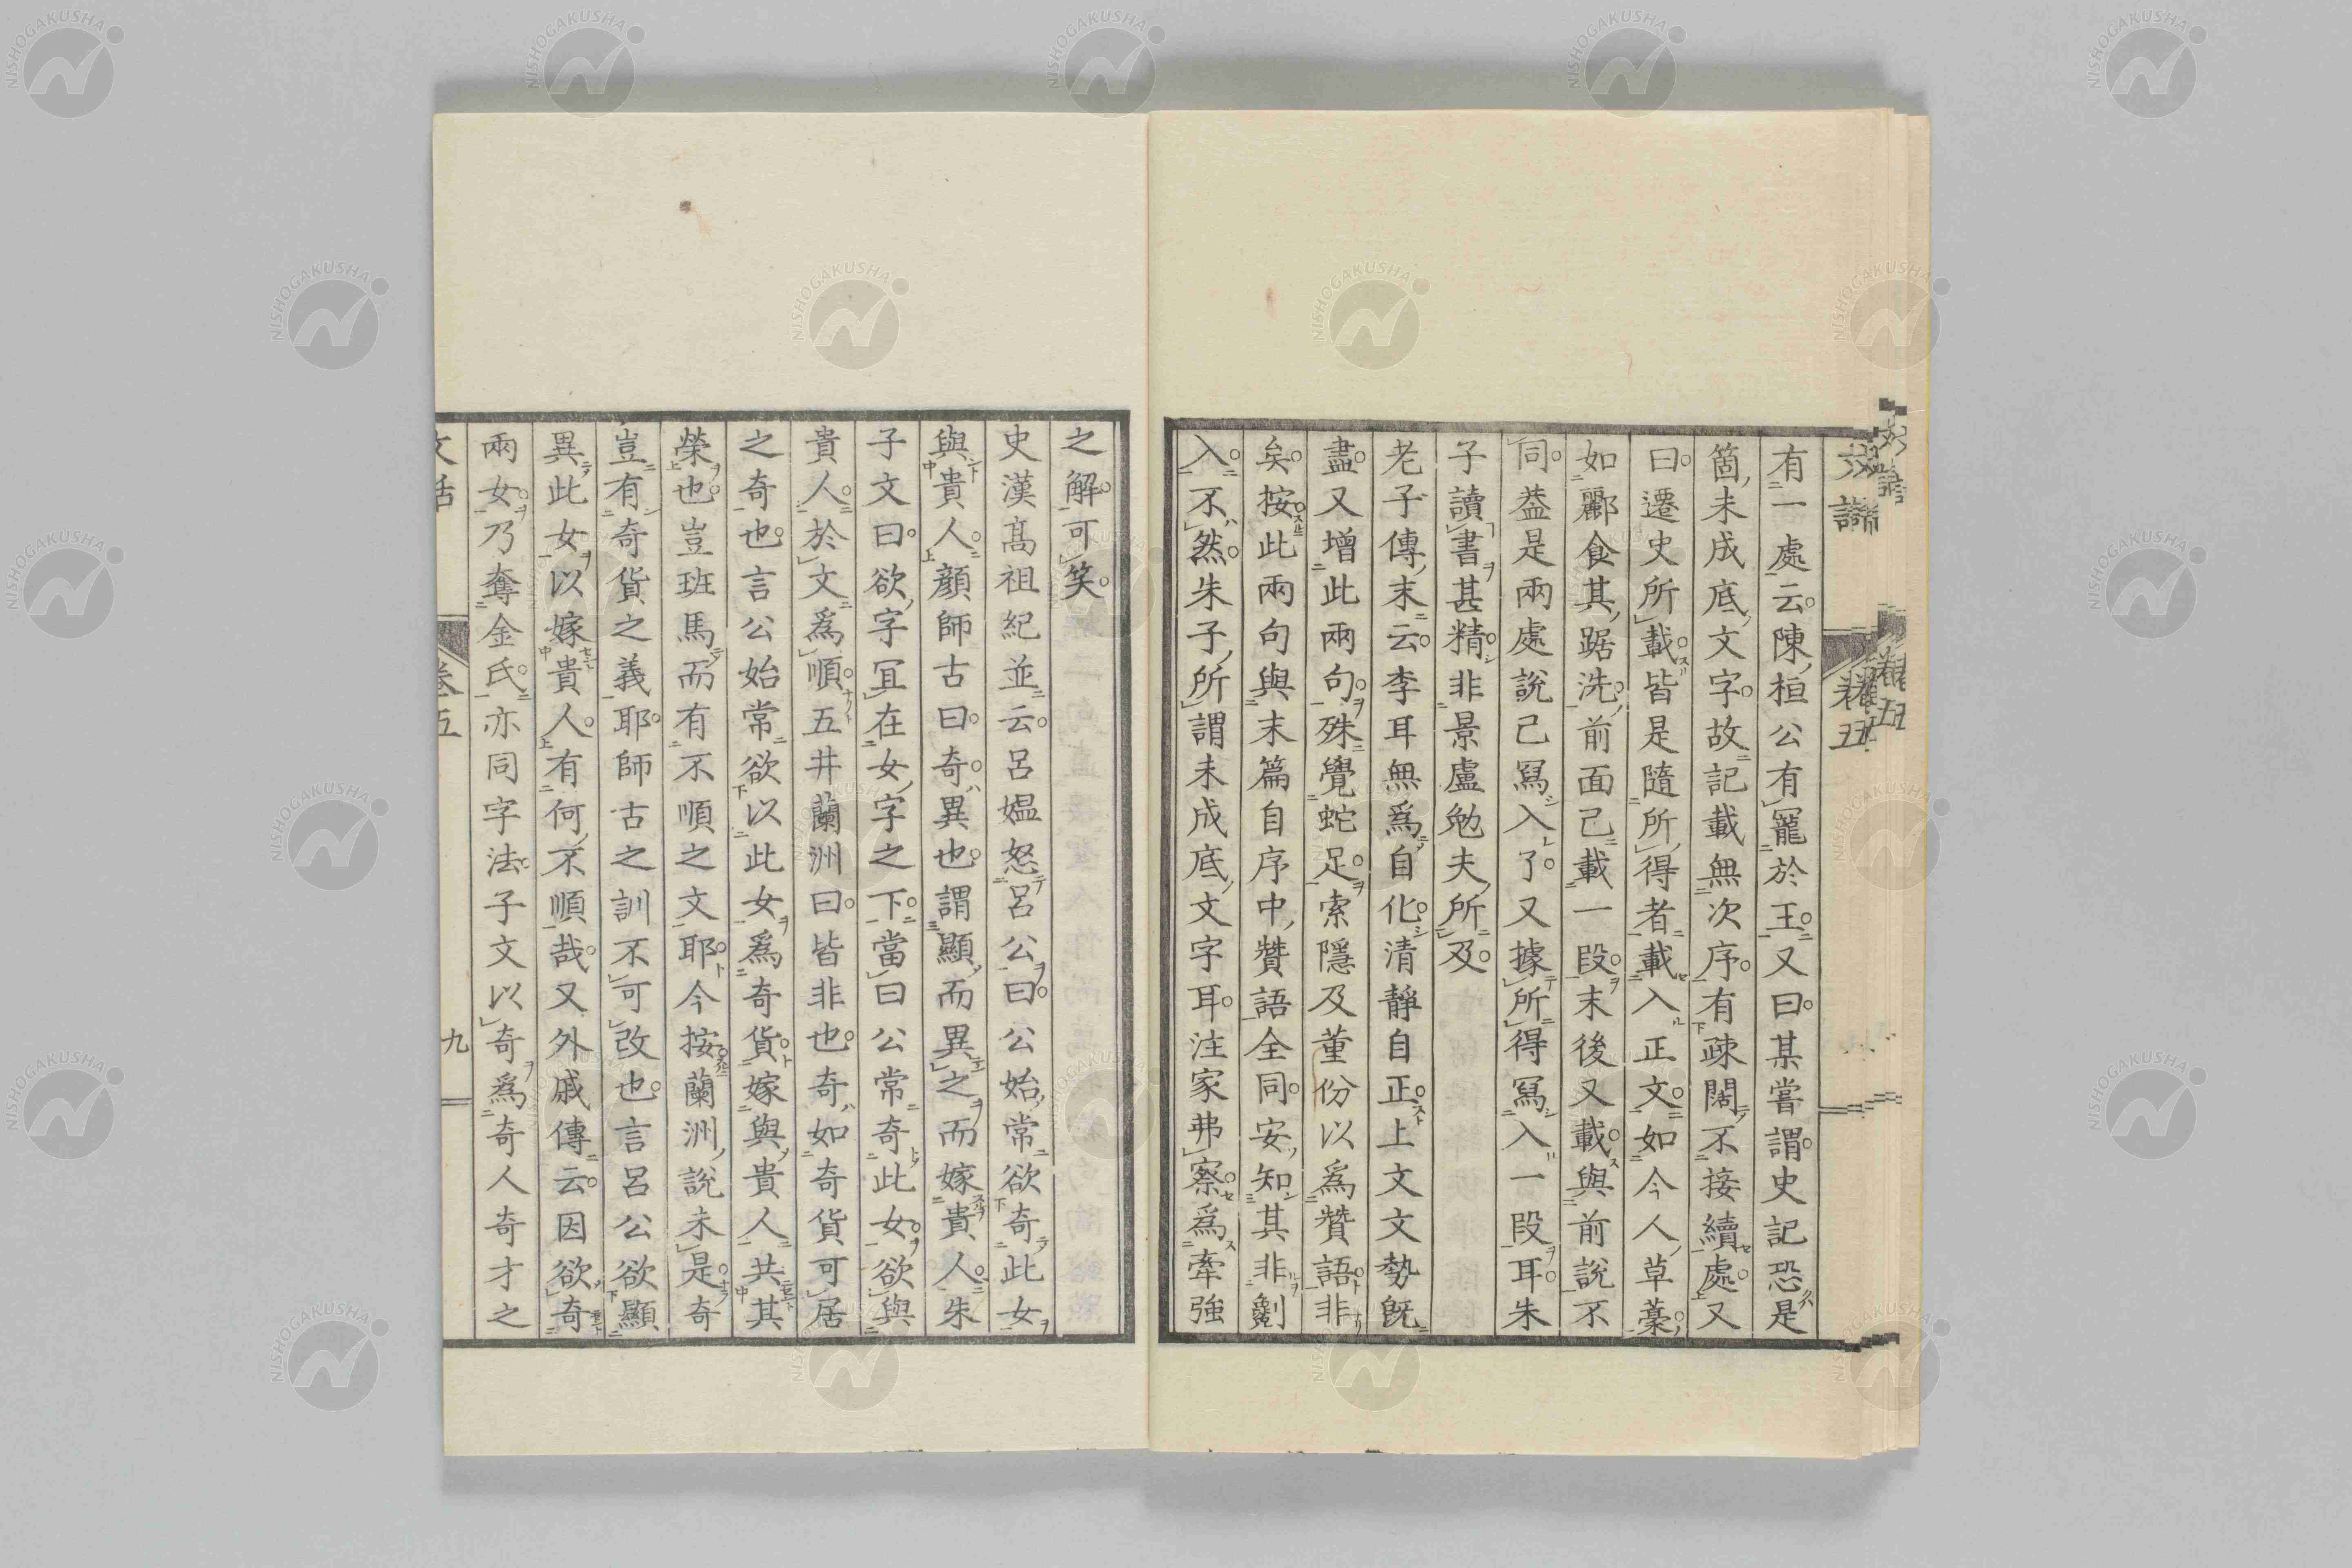 有一處云陳桓公有寵於王又曰某嘗謂史記恐是
箇未成底文字故記載無次序有疎闊不接續處又
曰遷史所載皆是隨所得者載入正文如今人草藁
如酈食其踞洗前面已載一段末後又載與前說不
同蓋是兩處說已冩入了又據所得冩入一段耳朱
子讀書甚精非景盧勉夫所及
老子傳末云李耳無爲自化清靜自正上文文勢既
盡又增此兩句殊覺蛇足索隱及董份以爲贊語非
矣按此兩句與末篇自序中贊語全同安知其非劖
入不然朱子所謂未成底文字耳注家弗察爲牽強
之解可笑
史漢高祖紀並云呂媼怒呂公曰公始常欲奇此女
與貴人顏師古曰奇異也謂顯而異之而嫁貴人朱
子文曰欲字冝在女字之下當曰公常奇此女欲與
貴人於文爲順五井蘭洲曰皆非也奇如奇貨可居
之奇也言公始常欲以此女爲奇貨嫁與貴人共其
榮也豈班馬而有不順之文耶今按蘭洲說未是奇
豈有奇貨之義耶師古之訓不可改也言呂公欲顯
異此女以嫁貴人有何不順哉又外戚傳云因欲奇
兩女乃奪金氏亦同字法子文以奇爲奇人奇才之
文話 卷五 九
NISHOGAKUSHA